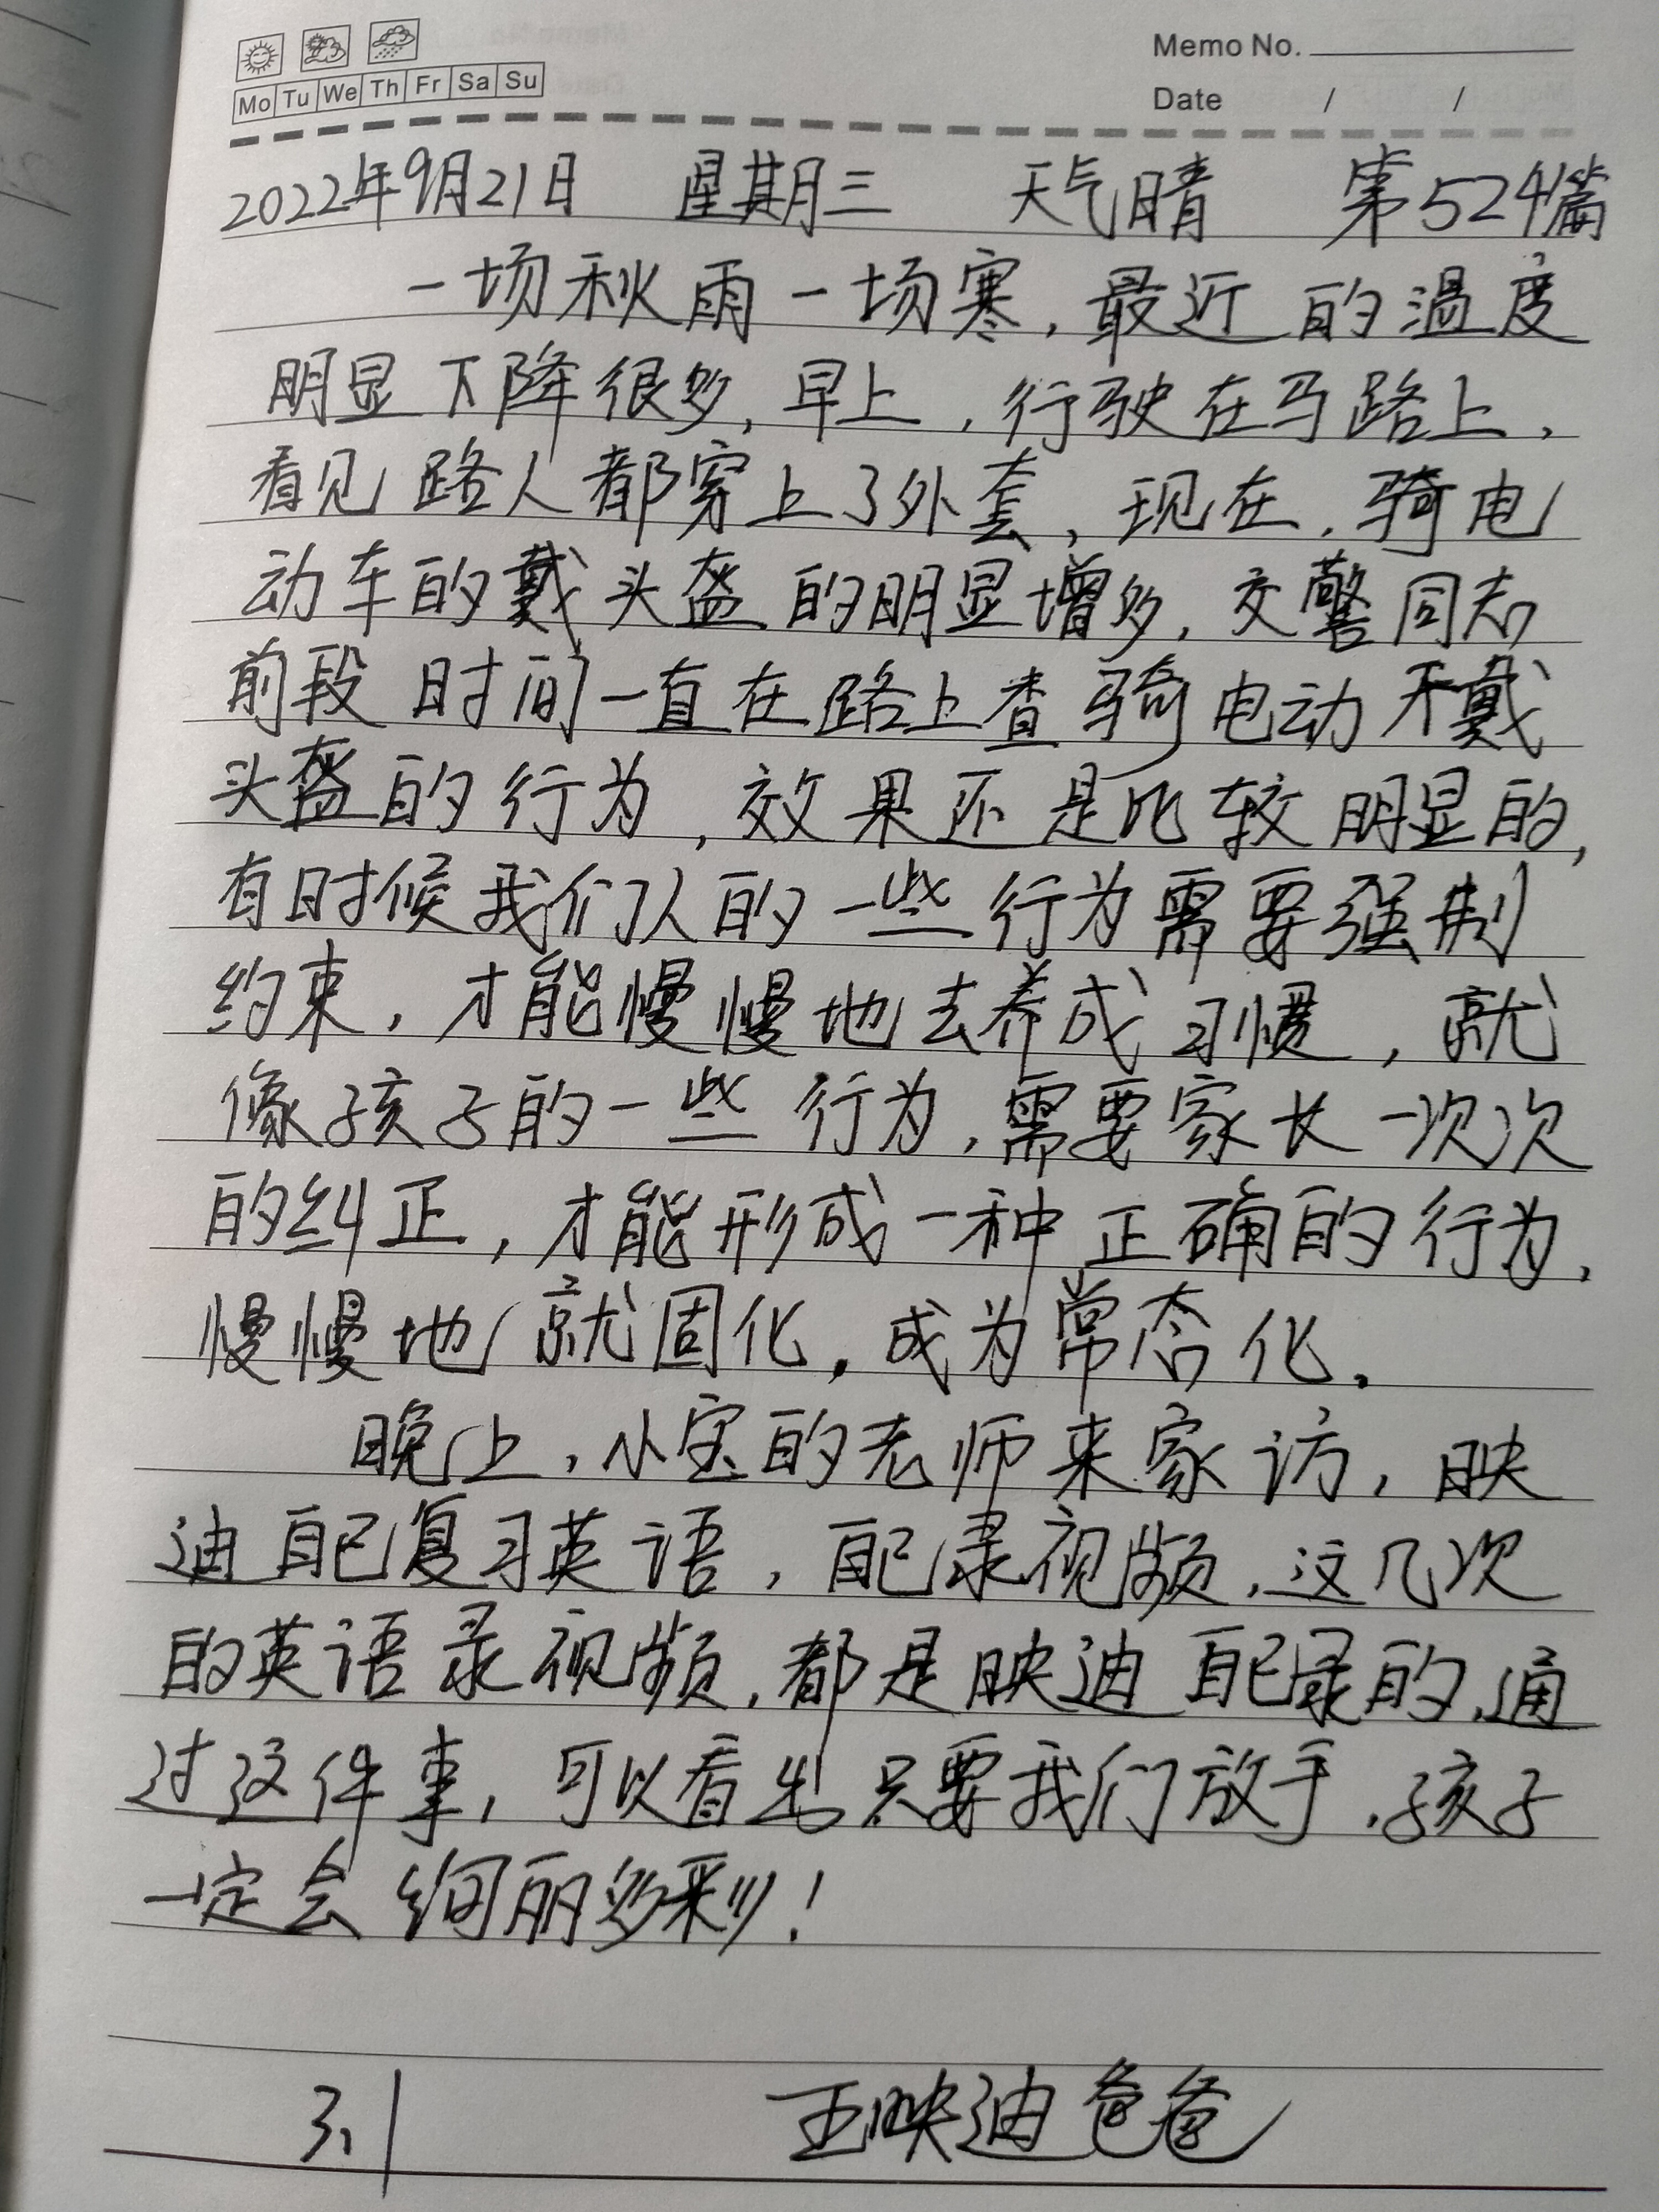 Memo No.
Mo Tu We Th Fr Sa Su
Date / /
2022年9月21日 星期三 天气晴 第524篇
一场秋雨一场寒,最近的温度
明显下降很多,早上,行驶在马路上,
看见路人都穿上了外套,现在,骑电
动车的戴头盔的明显增多,交警同志
前段时间一直在路上查骑电动不戴
头盔的行为,效果还是比较明显的,
有时候我们人的一些行为需要强制
约束,才能慢慢地去养成习惯,就
像孩子的一些行为,需要家长一次次
的纠正,才能形成一种正确的行为,
慢慢地就固化,成为常态化。
晚上,小宝的老师来家访,映
迪自己复习英语,自己录视频,这几次
的英语录视频,都是映迪自己录的,通
过这件事,可以看出只要我们放手,孩子
一定会绚丽多彩!
3.1 王映迪爸爸